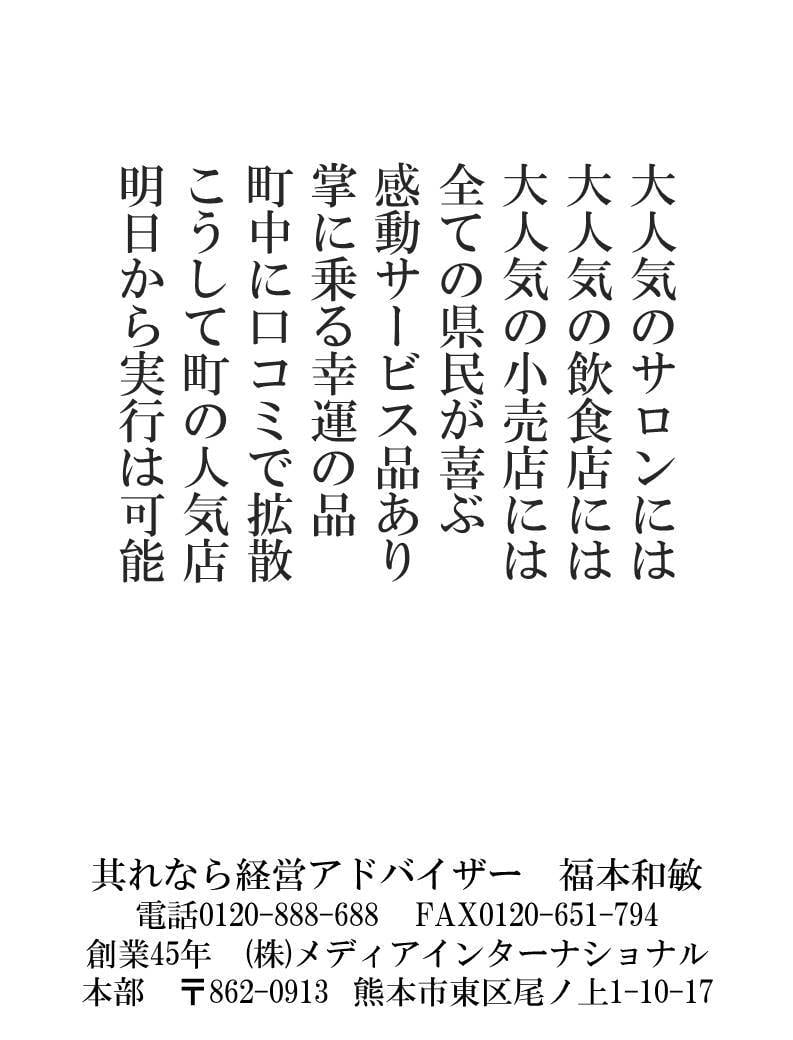 大人気のサロンには
大人気の飲食店には
大人気の小売店には
全ての県民が喜ぶ
感動サービス品あり
掌に乗る幸運の品
町中に口コミで拡散
こうして町の人気店
明日から実行は可能
其れなら経営アドバイザー　福本和敏
電話0120-888-688　FAX0120-651-794
創業45年　(株)メディアインターナショナル
本部　〒862-0913　熊本市東区尾ノ上1-10-17